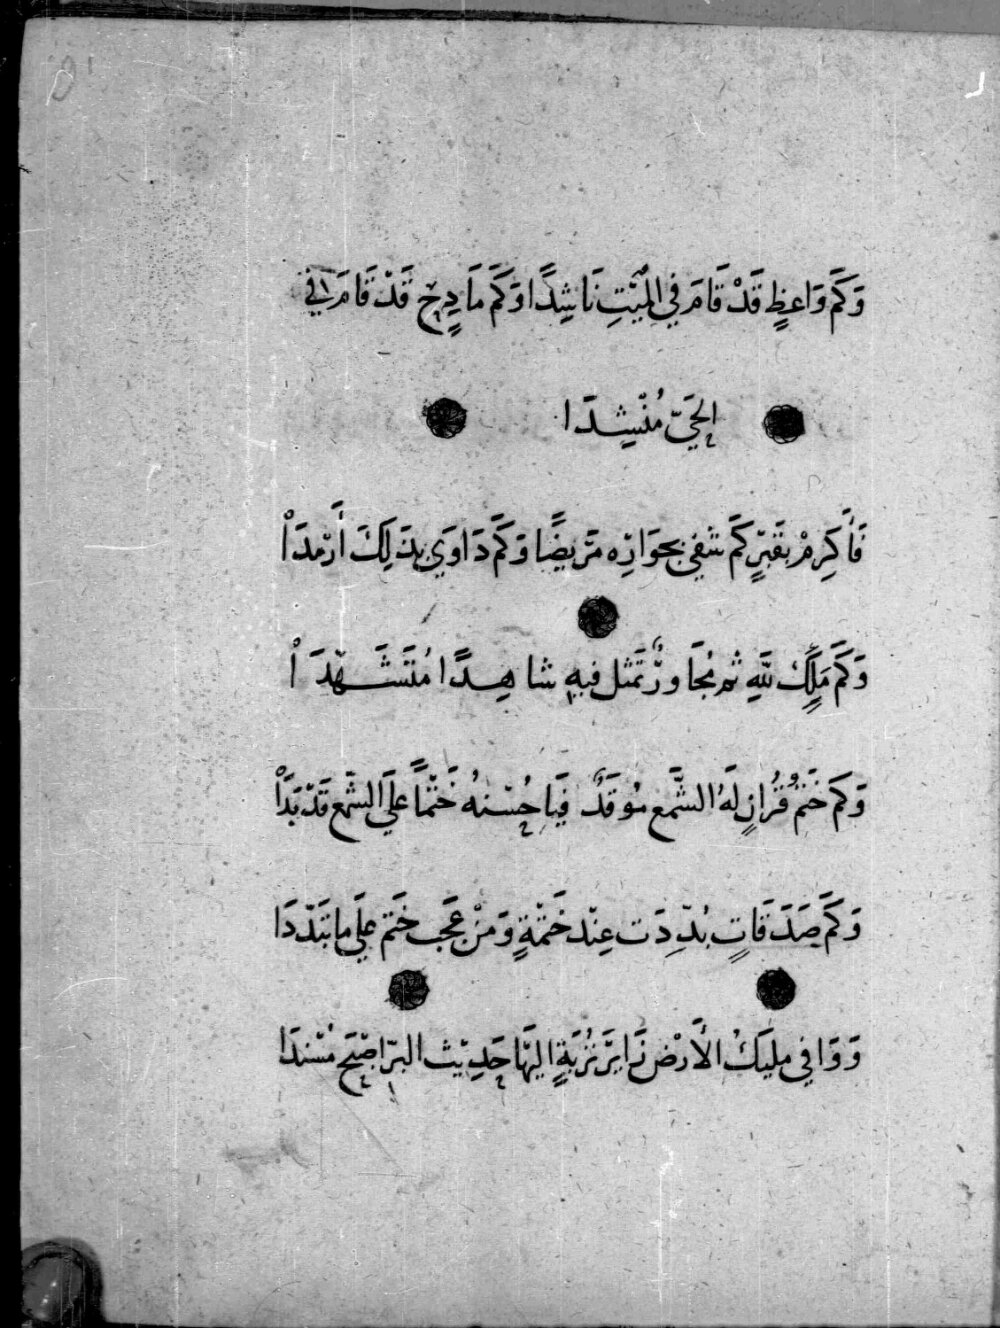 وَكَمْ وَاعِظٍ قَدْ قَامَ فِي الْمَيِّتِ نَاشِدًا وَكَمْ مَادِحٍ قَدْ قَامَ فِي
الحَيِّ مُنْشِدَا
فَأَكرِمْ بقَبْرٍ كَمْ شفي بجوَارِه مَرِيضًا وَكَمْ دَاوَي بذَلِكَ أَرْمدَا
وَكَمْ مَلِكٍ للهِ ثم مُجَاورٌ تَمثل فيهِ شاهِدًا مُتَشَهِّدَا
وَكَمْ خَتْمُ قُرانٍ لَهُ الشَّمع مُوقَدٌ فَيَا حُسْنهُ خَتْمًا عَلَي الشمْع قَدْ بَدَا
وَكَمْ صَدَقَاتٍ بُدِّدَت عِنْد خَتْمَةٍ وَمنْ عَجَب خَتم عَلَي ما تبَدّدَا
وَوَافي مليَكُ الأرْض زَايرَ تُرْبَةٍ اليهَا حَدِيْث البرّ اصْبَح مُسْندَا